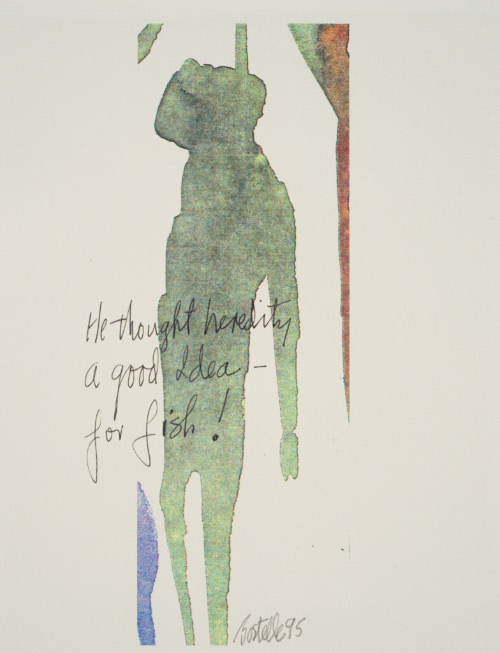 He thought heredity
a good Idea –
for fish!
Bostelle 95